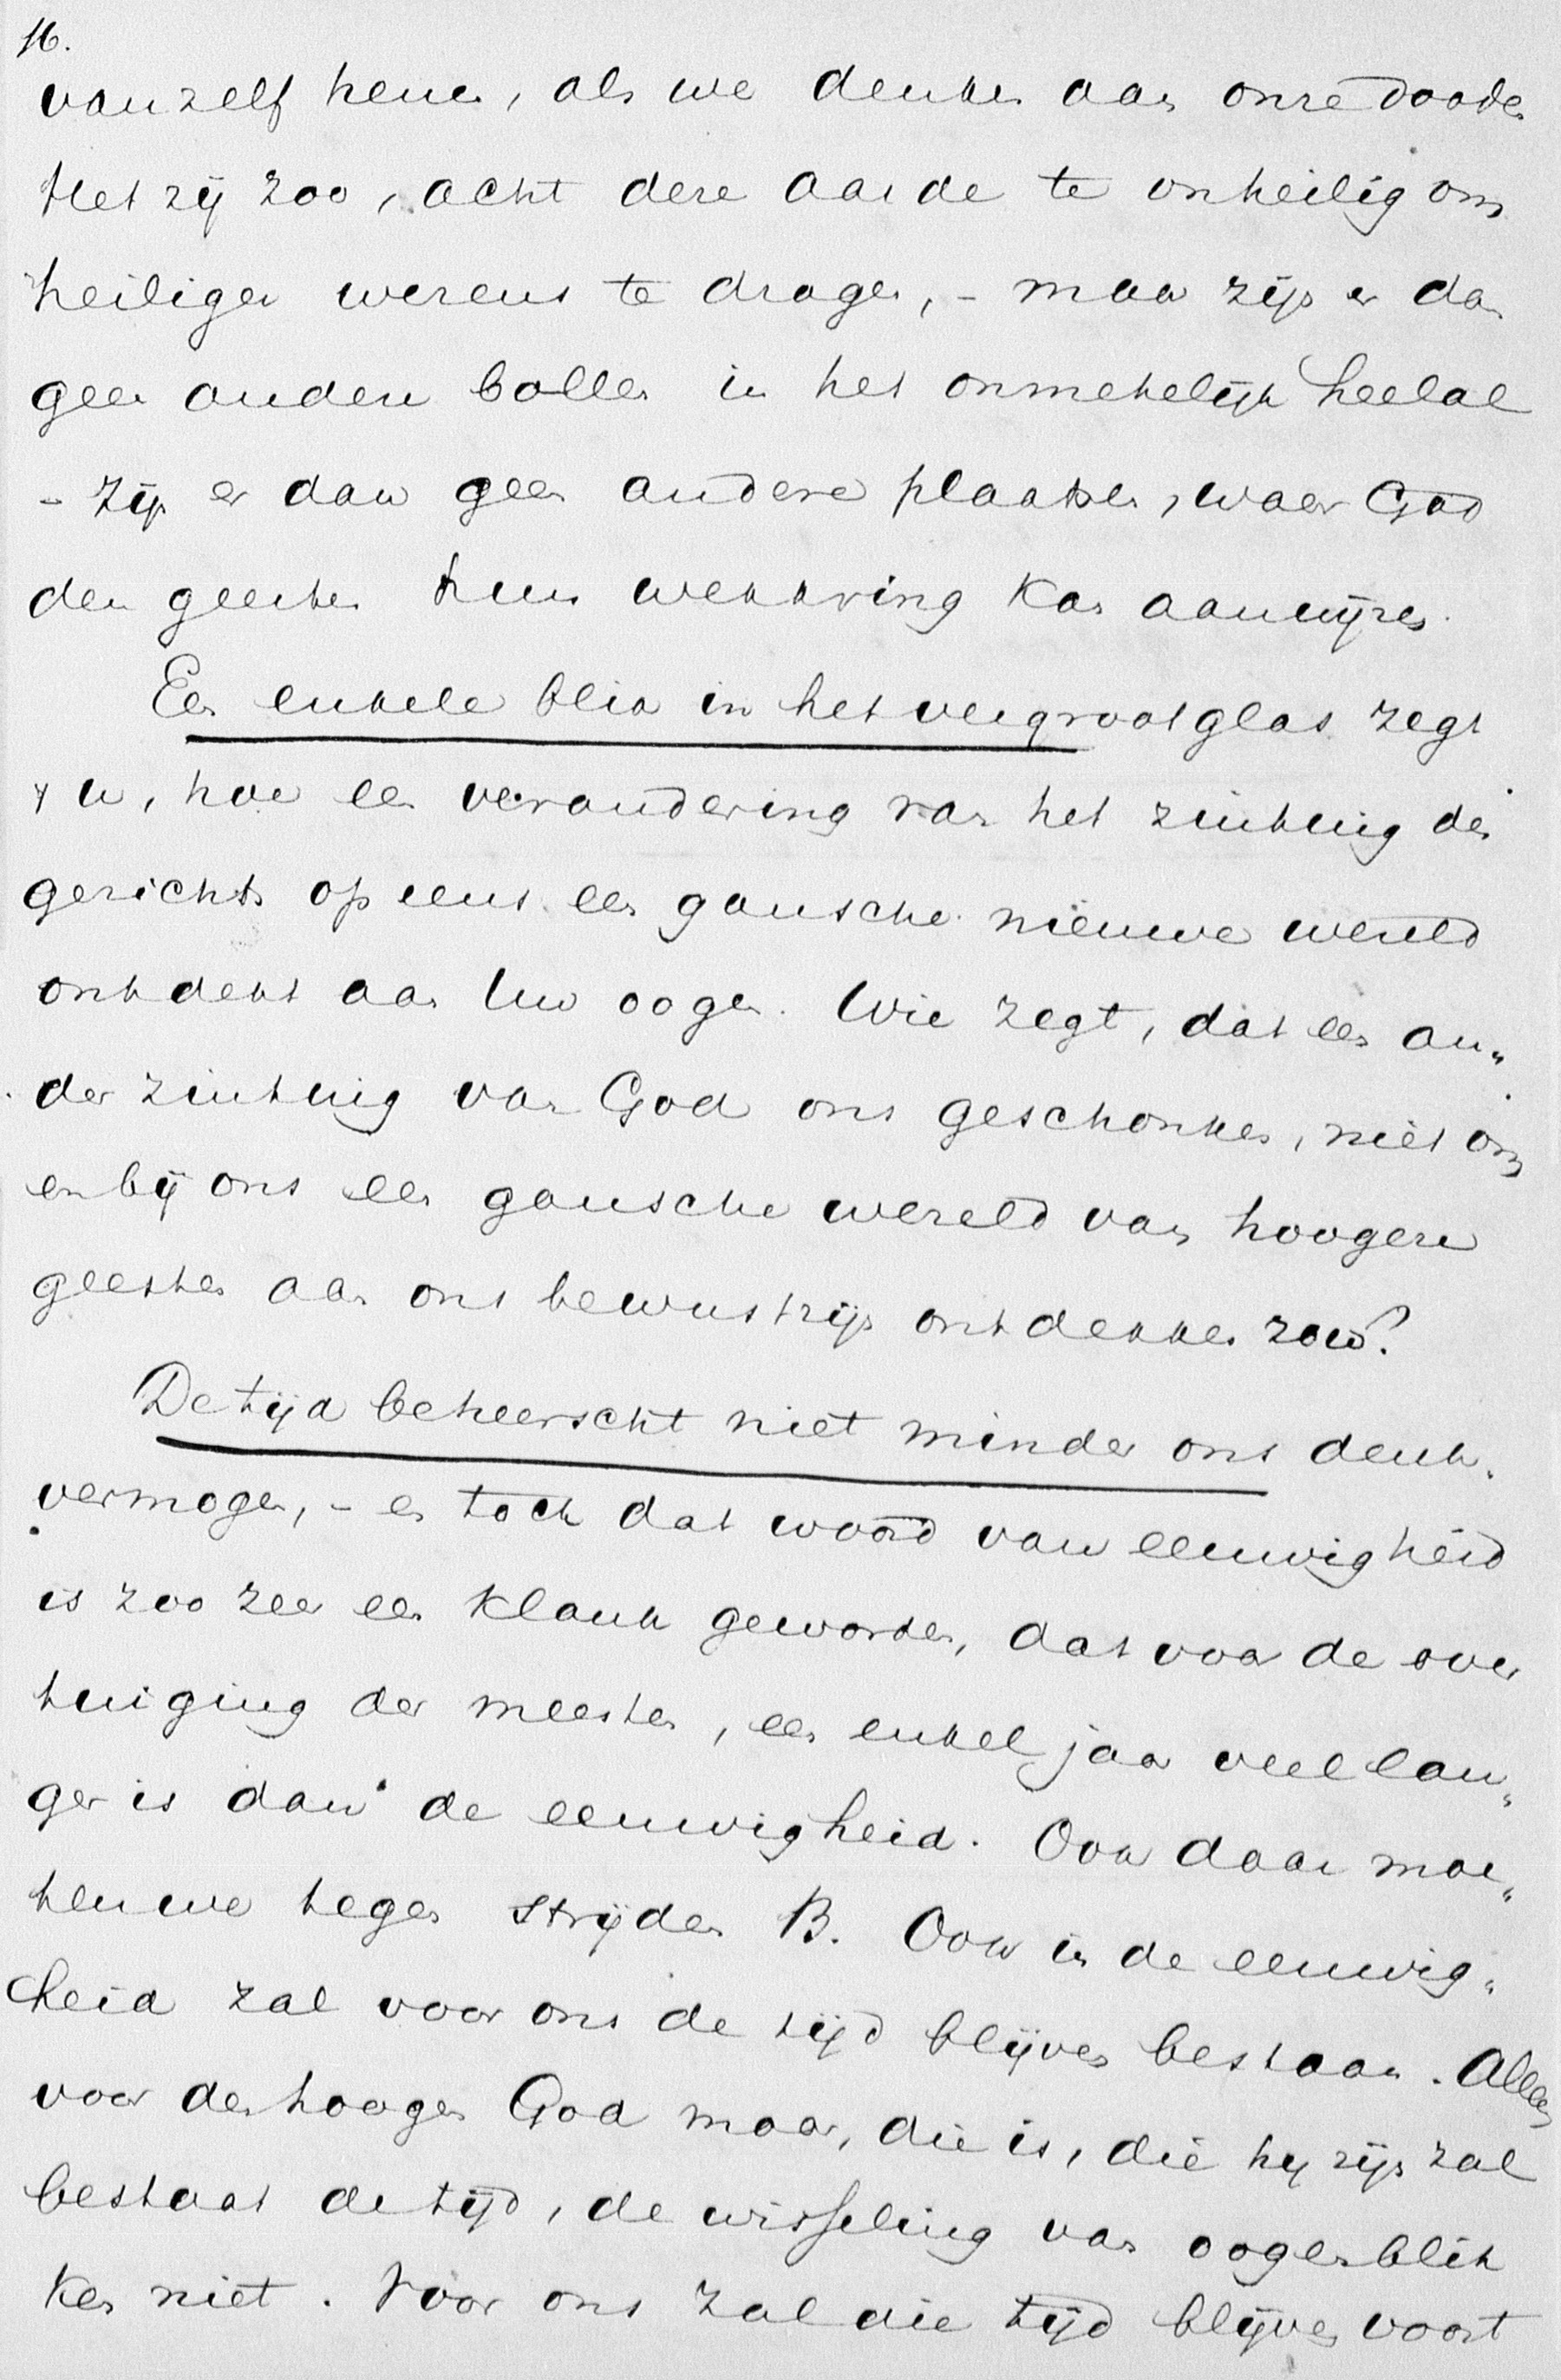 16.
vanzelf henen, als we denken aan onze dooden
Het zij zoo, acht deze aarde te onheilig om
heiliger wezens te dragen, - maar zijn er dan
geen anderen bollen in het onmetelijk heelal
- zijn er dan geen andere plaatsen, waar God
den geesten hun werkkring kan aanwijzen.
Een enkele blik in het vergrootglas zegt
u, hoe een verandering van het zintuig des
gezichts op eens een gansche nieuwe wereld
ontdekt aan Uw oogen. Wie zegt, dat een an„
der zintuig van God ons geschonken, niet om
en bij ons een gansche wereld van hoogere
geesten aan ons bewustzijn ontdekken zou?
De tijd beheerscht niet minder ons denk.
vermogen, - en toch dat woord van eeuwigheid
is zoo zeer een klank geworden, dat voor de over
tuiging der meesten, een enkel jaar veel lan„
ger is dan de eeuwigheid. Ook daar moe„
ten we tegen strijden B. Ook in de eeuwig„
heid zal voor ons de tijd blijven bestaan. Alleen
voor den hoogen God maar, die is, die hij zijn zal
bestaat de tijd, de wisseling van oogenblik
ken niet. Voor ons zal die tijd blijven voort